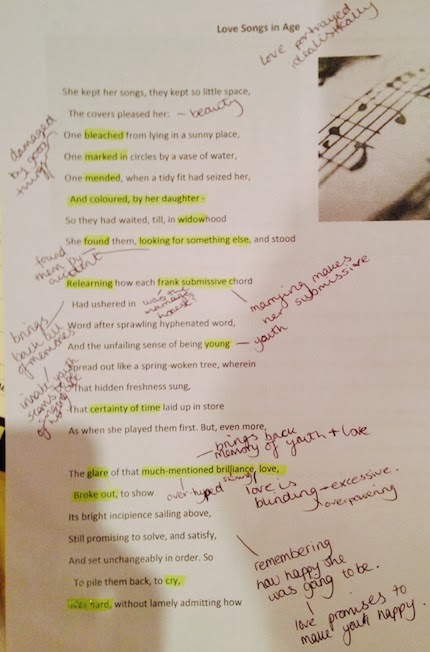 Love Songs in Age
love portrayed
idealistically
She kept her songs, they kept so little space,
The covers pleased her: - beauty
damaged
by good
things
One bleached from lying in a sunny place,
One marked in circles by a vase of water,
One mended, when a tidy fit had seized her,
And coloured, by her daughter -
So they had waited, till, in widowhood
She found them, looking for something else, and stood
found
them by
accident
Relearning how each frank submissive chord
Had ushered in
was the
marriage
marrying makes
her submissive
brings
back all
of memories
Word after sprawling hyphenated word,
And the unfailing sense of being young
youth
Spread out like a spring-woken tree, wherein
That hidden freshness sung,
That certainty of time laid up in store
As when she played them first. But, even more,
brings back
memory of youth + love
The glare of that much-mentioned brilliance, love,
Broke out, to show
over-hyped
love is
blinding - excessive.
overpowering
Its bright incipience sailing above,
Still promising to solve, and satisfy,
And set unchangeably in order. So
To pile them back, to cry,
hard, without lamely admitting how
remembering
how happy she
was going to be.
love promises to
make you happy.